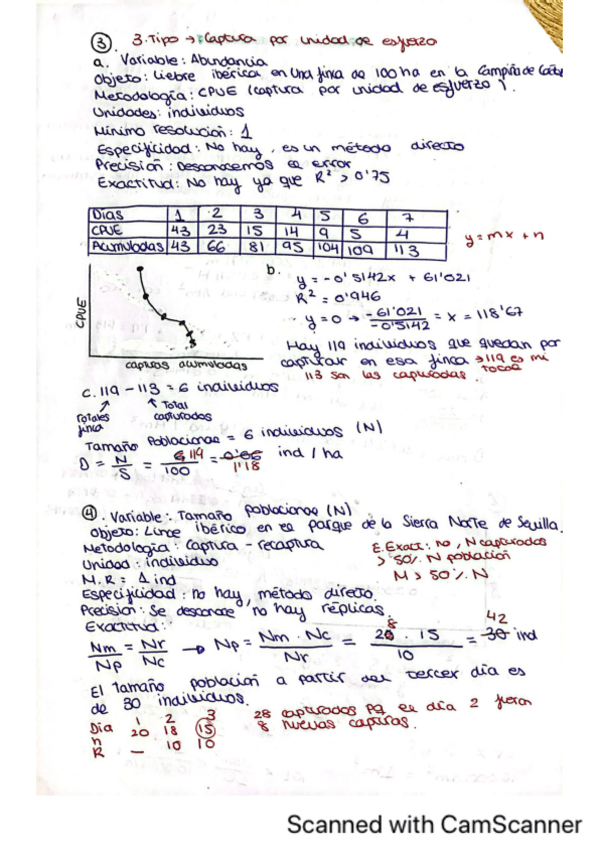 ③. 3. Tipo → Captura por unidad de esfuerzo
a. Variable: Abundancia
Objeto: Liebre ibérica en una finca de 100 ha en la Campiña de
Metodología: CPUE (captura por unidad de esfuerzo).
Unidades: individuos
Mínimo resolución: 1
Especificidad: No hay, es un método directo
Precisión: Desconocemos el error
Exactitud: No hay ya que R² > 0'75
Días 1 2 3 4 5 6 7
CPUE 43 23 15 14 9 5 4
Acumuladas 43 66 81 95 104 109 113
y = mx + n
CPUE
capturas acumuladas
b. y = -0'5142x + 61'021
R² = 0'946
y = 0 → -61'021 / -0'5142 = x = 118'67
Hay 119 individuos que quedan por
capturar en esa finca → 119 es mi
113 son las capturadas. tocoa
c. 119 - 113 = 6 individuos
Totales finca
Total capturados
Tamaño Poblacional = 6 individuos (N)
D = N/S = 6 119 / 100 = 0'06 1'18 ind / ha
④. Variable: Tamaño poblacional (N)
Objeto: Lince ibérico en el parque de la Sierra Norte de Sevilla.
Metodología: Captura - recaptura
Unidad: individuo
M.R = 1 ind
E. Exact: no, N capturados
> 50% N población
M > 50% N
Especificidad: no hay, método directo.
Precisión: Se desconoce no hay réplicas.
Exactitud:
Nm/Np = Nr/Nc → Np = Nm · Nc / Nr = 20 8 · 15 / 10 = 30 42 ind
El tamaño población a partir del tercer día es
de 30 individuos.
Día 1 2 3
n 20 18 15
R — 10 10
28 capturados pq el día 2 fueron
8 nuevas capturas.
Scanned with CamScanner